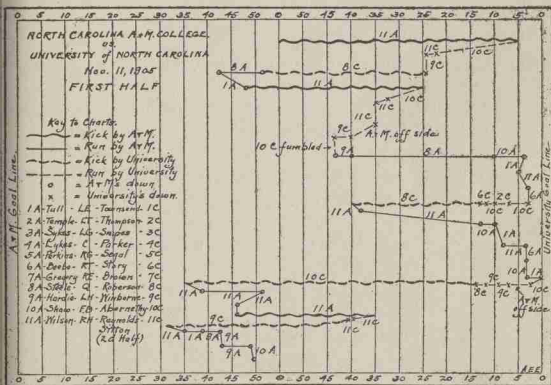 0 5 10 15 20 25 30 35 40 45 50 45 40 35 30 25 20 15 10 5 0
NORTH CAROLINA A&M. COLLEGE
vs.
UNIVERSITY of NORTH CAROLINA
Nov. 11, 1905
FIRST HALF
Key to Charts.
= Kick by A&M.
= Run by A&M.
= Kick by University
= Run by University
o = A&M's down.
x = University's down.
1A-Tull - LE - Townsend. 1C
2A-Temple- LT - Thompson - 2C
3A-Sykes- LG - Snipes - 3C
4A-Lykes - C - Parker - 4C
5A-Perkins- RG - Segal - 5C
6A-Beebe- RT - Story - 6C
7A-Gregory RE - Brown - 7C
8A-Steele - Q - Roberson- 8C
9A-Hardie LH - Winborne- 9C
10A-Shaw - FB - Abernethy 10C
11A-Wilson- RH - Reynolds - 11C
Sitton
(2d Half)
A&M. Goal Line.
University Goal Line
11A
11C
10C
9C
8A
8C
1A
11A
10C
11C
11C
9C
A&M. off side
10C fumbled
9A
8A
10A
1A
11A
6A
8C
6C
2C
10C
9C
10C
11A
11A
10A
11A
6A
10A
1A
10C
11A
11A
11A
8C
9C
10C
9C
10C
A&M.
off side
11A
11C
9C
11A
1A
8A
9A
9A
10A
AEE
0 5 10 15 20 25 30 35 40 45 50 45 40 35 30 25 20 15 10 5 0